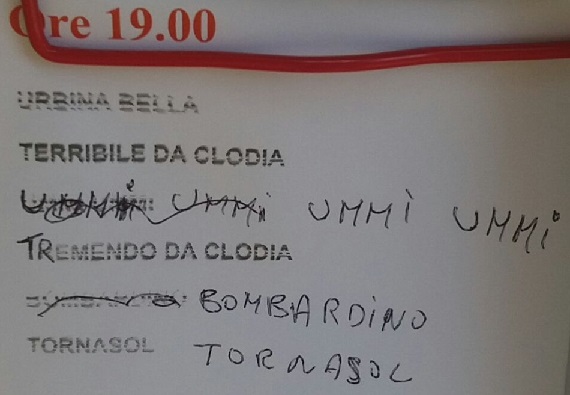 Ore 19.00
URBINA BELLA
TERRIBILE DA CLODIA
UMMI UMMI UMMI
TREMENDO DA CLODIA
BOMBARDINO
TORNASOL TORNASOL